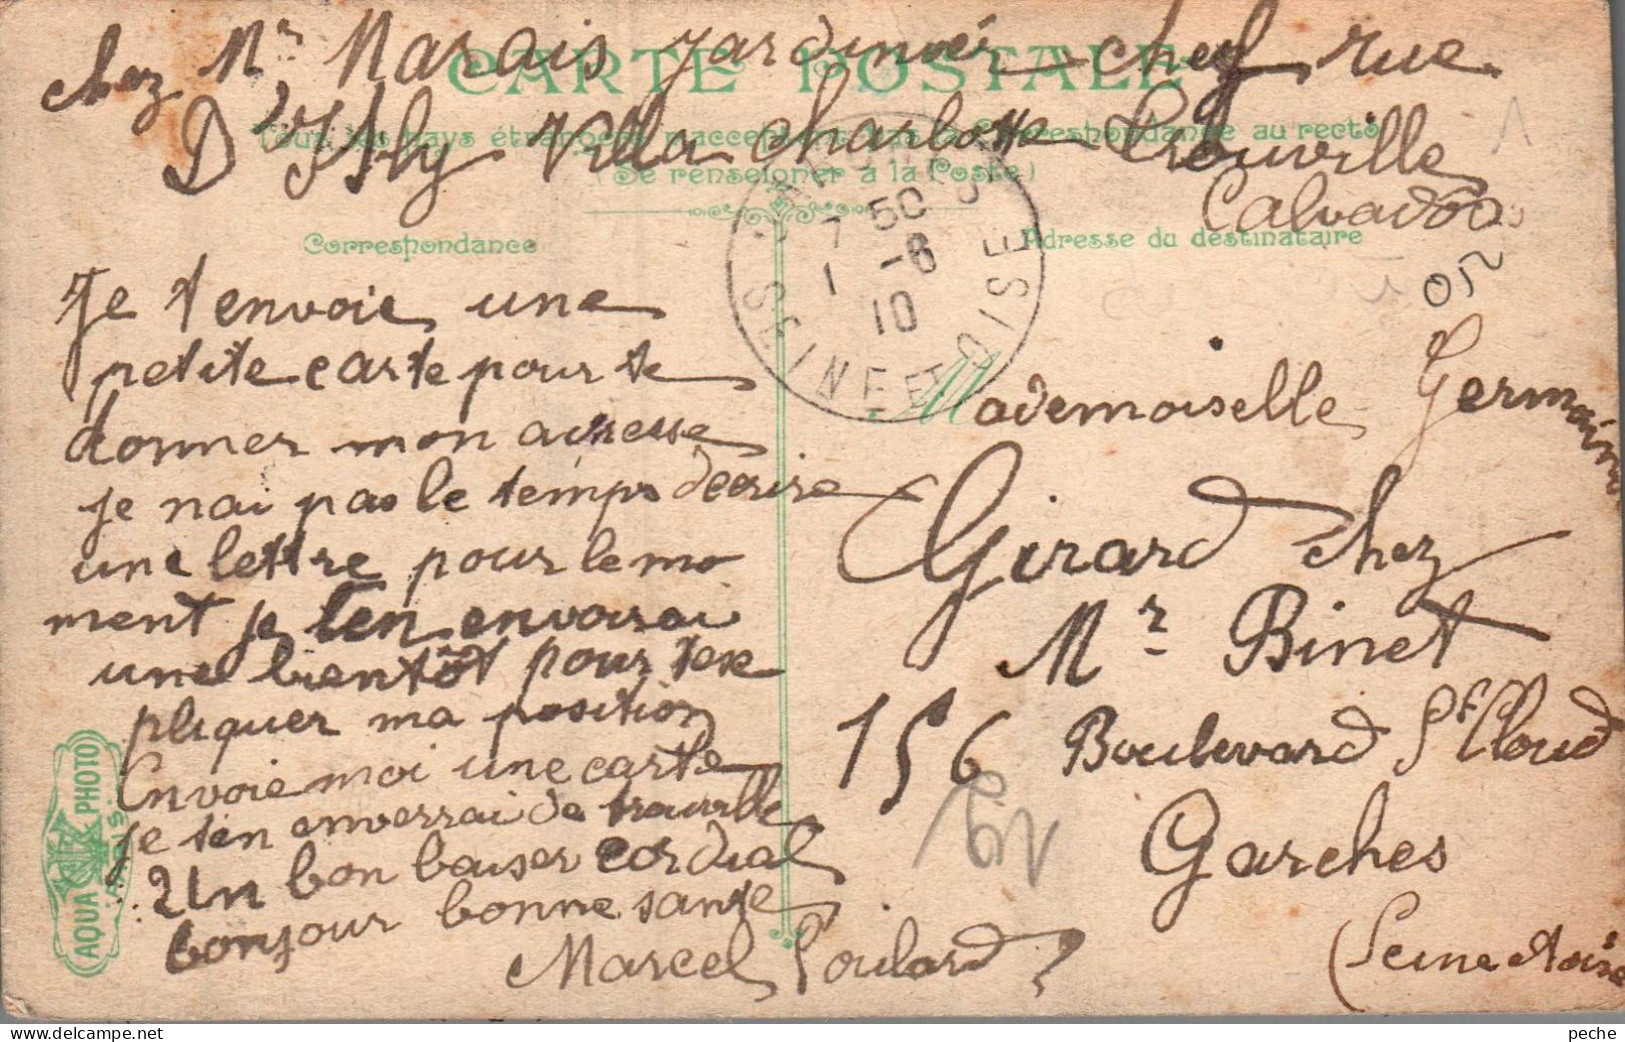 chez Mr Marais jardinier chef rue
D'Isly Villa Charlotte Trouville
Calvados
CARTE POSTALE
Tous les pays étrangers n'acceptent pas la Correspondance au recto
(Se renseigner à la Poste)
Correspondance
Adresse du destinataire
7 50
1 -8
10
SEINE ET OISE
Je t envoie une
petite carte pour te
donner mon adresse
je nai pas le temps décrire
une lettre pour le mo
ment je ten envoirai
une bientôt pour tex
pliquer ma position
Envoie moi une carte
je ten enverrai de trouville
Un bon baiser cordial
bonjour bonne sante
Marcel Poulard
Mademoiselle Germaine
Girard chez
Mr Binet
156 Boulevard St Cloud
Garches
(Seine et oise
AQUA PHOTO
PARIS
peche